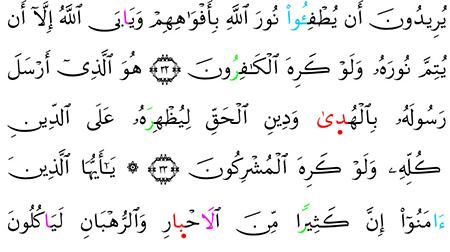 يُرِيدُونَ أَن يُطْفِـُٔوا۟ نُورَ ٱللَّهِ بِأَفْوَٰهِهِمْ وَيَابَى ٱللَّهُ إِلَّآ أَن
يُتِمَّ نُورَهُۥ وَلَوْ كَرِهَ ٱلْكَٰفِرُونَ ۝٣٢ هُوَ ٱلَّذِىٓ أَرْسَلَ
رَسُولَهُۥ بِٱلْهُدَىٰ وَدِينِ ٱلْحَقِّ لِيُظْهِرَهُۥ عَلَى ٱلدِّينِ
كُلِّهِۦ وَلَوْ كَرِهَ ٱلْمُشْرِكُونَ ۝٣٣ ۞ يَٰٓأَيُّهَا ٱلَّذِينَ
ءَامَنُوٓا۟ إِنَّ كَثِيرًا مِّنَ ٱلَاحْبِارِ وَٱلرُّهْبَانِ لَيَاكُلُونَ